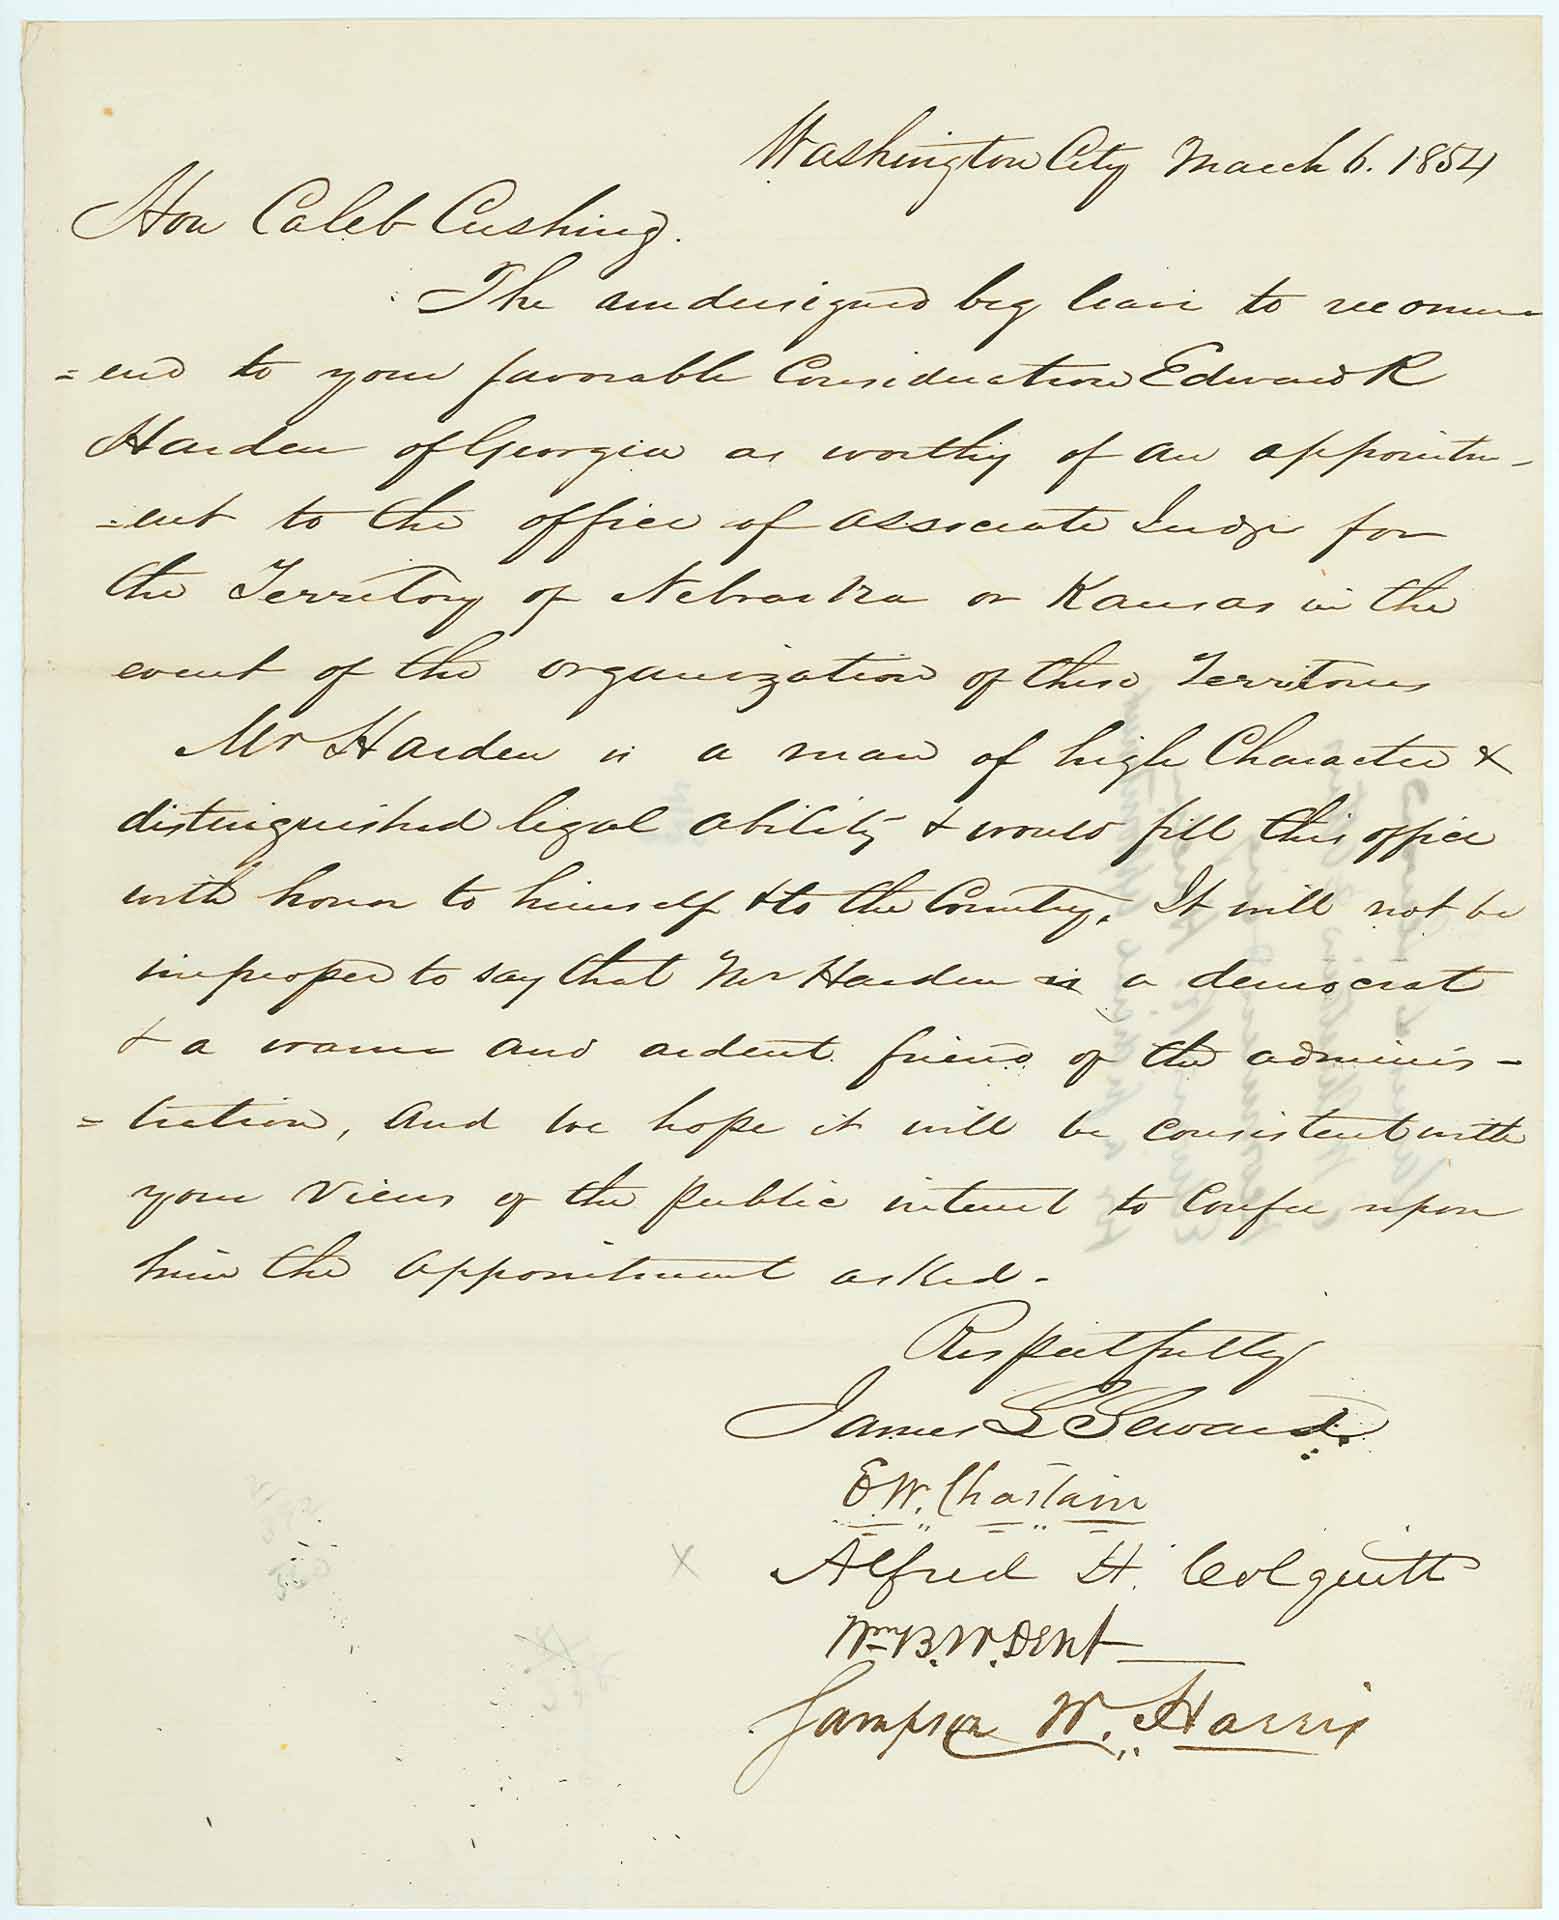 Washington City March 6. 1854
Hon Caleb Cushing.
The undersigned beg leave to recomm
=end to your favorable Consideration Edward R
Harden of Georgia as worthy of an appointm-
=ent to the office of associate Judge for
the Territory of Nebraska or Kansas in the
event of the organization of these Territories
Mr Harden is a man of high Character &
distinguished legal ability & would fill this office
with honor to himself & to the Country. It will not be
improper to say that Mr Harden is a democrat
& a warm and ardent friend of the adminis-
=tration, and we hope it will be consistent with
your views of the public interest to confer upon
him the appointment asked-
Respectfully
James L Seward.
E W. Chastain
Alfred H. Colquitt
Wm B. W. Dent
Sampson W. Harris